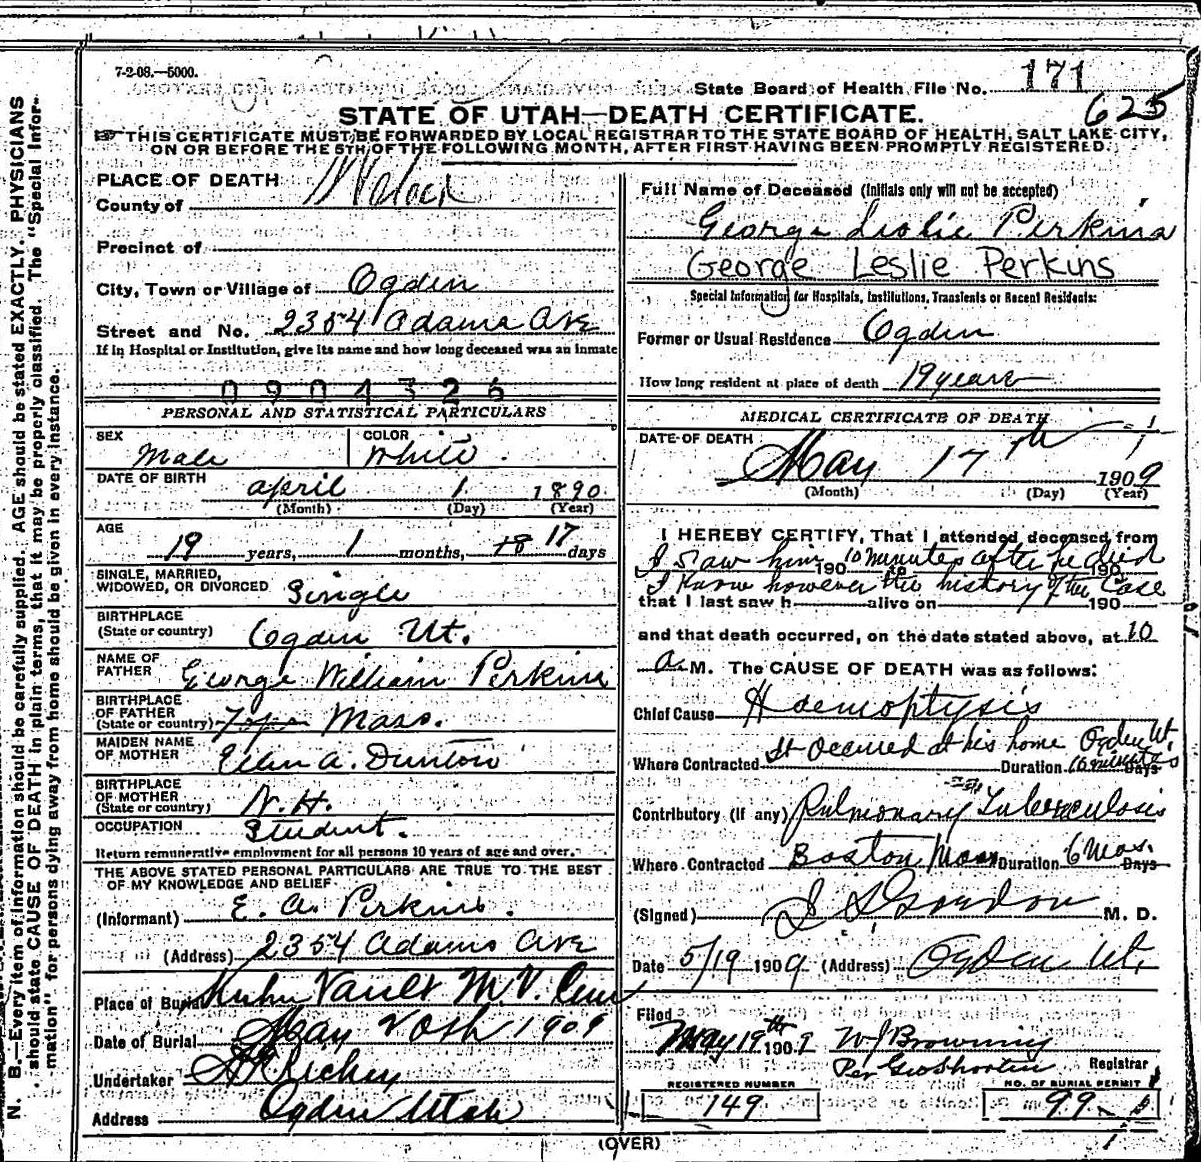 7-2-08.—5000.
State Board of Health File No. 171
625
STATE OF UTAH—DEATH CERTIFICATE.
THIS CERTIFICATE MUST BE FORWARDED BY LOCAL REGISTRAR TO THE STATE BOARD OF HEALTH, SALT LAKE CITY,
ON OR BEFORE THE 5TH OF THE FOLLOWING MONTH, AFTER FIRST HAVING BEEN PROMPTLY REGISTERED.
N. B.—Every item of information should be carefully supplied. AGE should be stated EXACTLY. PHYSICIANS
should state CAUSE OF DEATH in plain terms, that it may be properly classified. The "Special Infor-
mation" for persons dying away from home should be given in every instance.
PLACE OF DEATH
County of
Precinct of
City, Town or Village of Ogden
Street and No. 2354 Adams Ave
If in Hospital or Institution, give its name and how long deceased was an inmate
0904326
PERSONAL AND STATISTICAL PARTICULARS
SEX Male
COLOR White.
DATE OF BIRTH April 1 1890
(Month) (Day) (Year)
AGE 19 years, 1 months, 18 17 days
SINGLE, MARRIED,
WIDOWED, OR DIVORCED Single
BIRTHPLACE
(State or country) Ogden Ut.
NAME OF
FATHER George William Perkins
BIRTHPLACE
OF FATHER
(State or country) Mass.
MAIDEN NAME
OF MOTHER Ellen A. Dunton
BIRTHPLACE
OF MOTHER
(State or country) N.H.
OCCUPATION Student.
Return remunerative employment for all persons 10 years of age and over.
THE ABOVE STATED PERSONAL PARTICULARS ARE TRUE TO THE BEST
OF MY KNOWLEDGE AND BELIEF
(Informant) E. A. Perkins.
(Address) 2354 Adams Ave
Place of Burial Vault M.V. Cem
Date of Burial May 20th 1909
Undertaker Richey
Address Ogden Utah
Full Name of Deceased (Initials only will not be accepted)
George Leslie Perkins
George Leslie Perkins
Special Information for Hospitals, Institutions, Transients or Recent Residents:
Former or Usual Residence Ogden
How long resident at place of death 19 years
MEDICAL CERTIFICATE OF DEATH
DATE OF DEATH
May 17th 1909
(Month) (Day) (Year)
I HEREBY CERTIFY, That I attended deceased from
I saw him 10 minutes after he died
190 to 190
I know however the history of the case
that I last saw h alive on 190
and that death occurred, on the date stated above, at 10
a. M. The CAUSE OF DEATH was as follows:
Chief Cause Haemoptysis
It occured at his home Ogden Ut.
Where Contracted Duration 10 minutes Days
Contributory (if any) Pulmonary Tuberculosis
Where Contracted Boston Mass Duration 6 Mos. Days
(Signed) Gordon M. D.
Date 5/19 1909 (Address) Ogden Ut.
Filed
May 19th 1909 W J Browning
Registrar
REGISTERED NUMBER
149
NO. OF BURIAL PERMIT
99
(OVER)